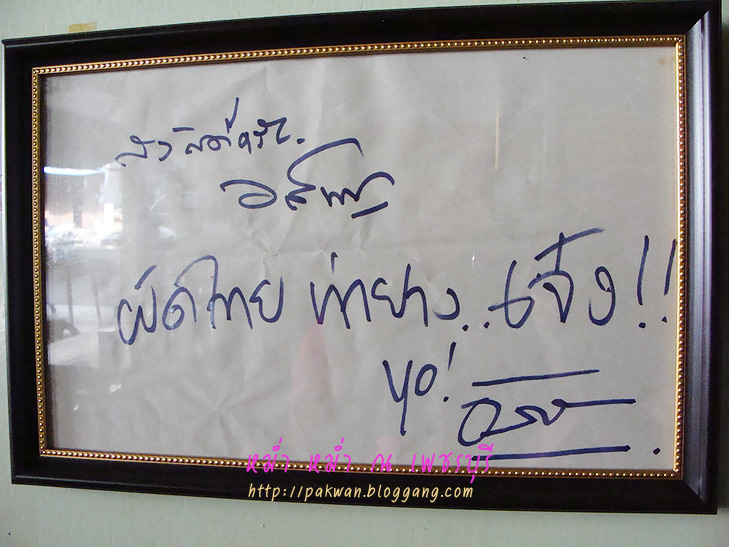 สวัสดีครับ.
ผัดไทย ท่ายาง..เจ๋ง!!
yo!
หม่ำ หม่ำ ณ เพชรบุรี
http://pakwan.bloggang.com